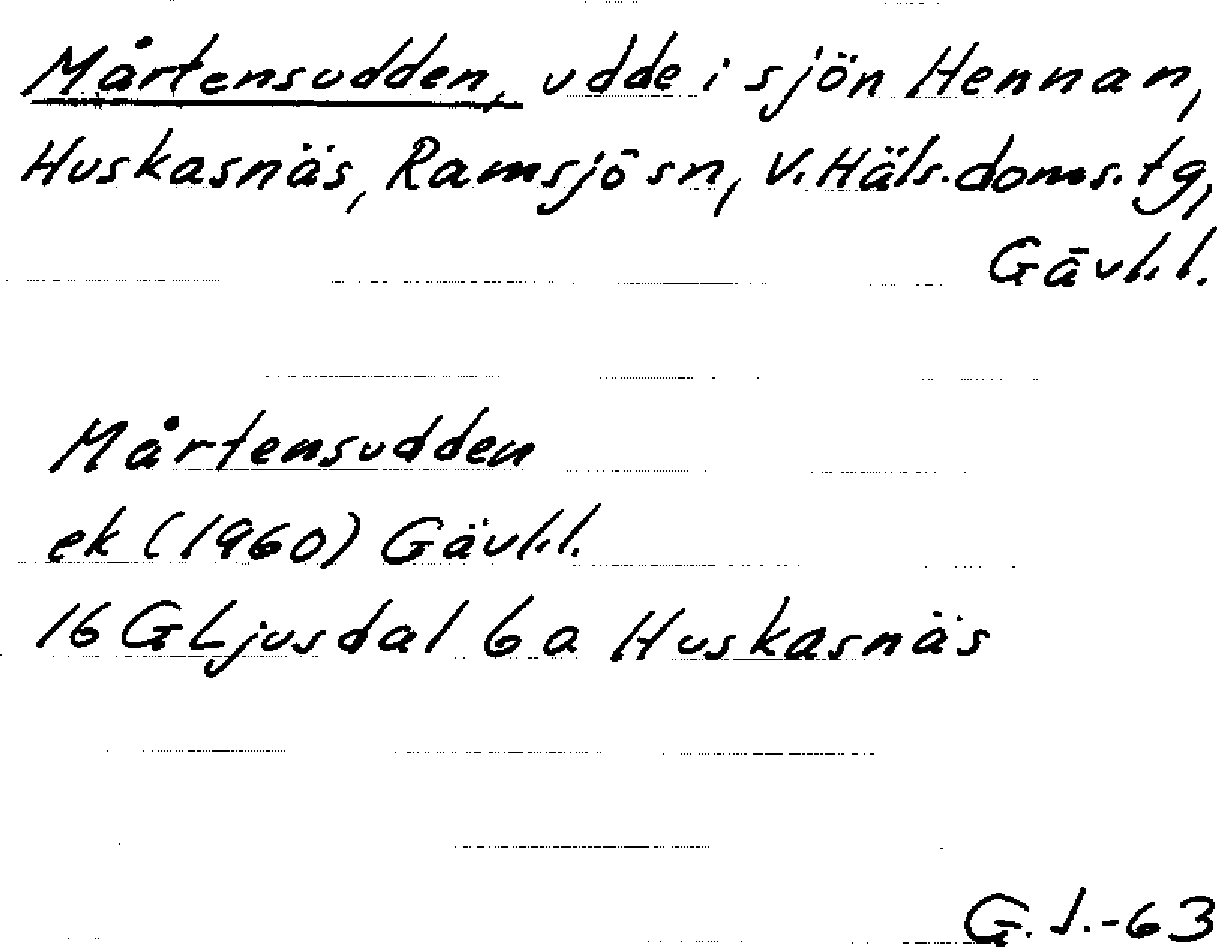 Mårtensudden, udde i sjön Hennan,
Huskasnäs, Ramsjö sn, V. Häls. doms. tg,
Gävl. l.
Mårtensudden
ek (1960) Gävl. l.
16 G Ljusdal 6 a Huskasnäs
G. J. -63